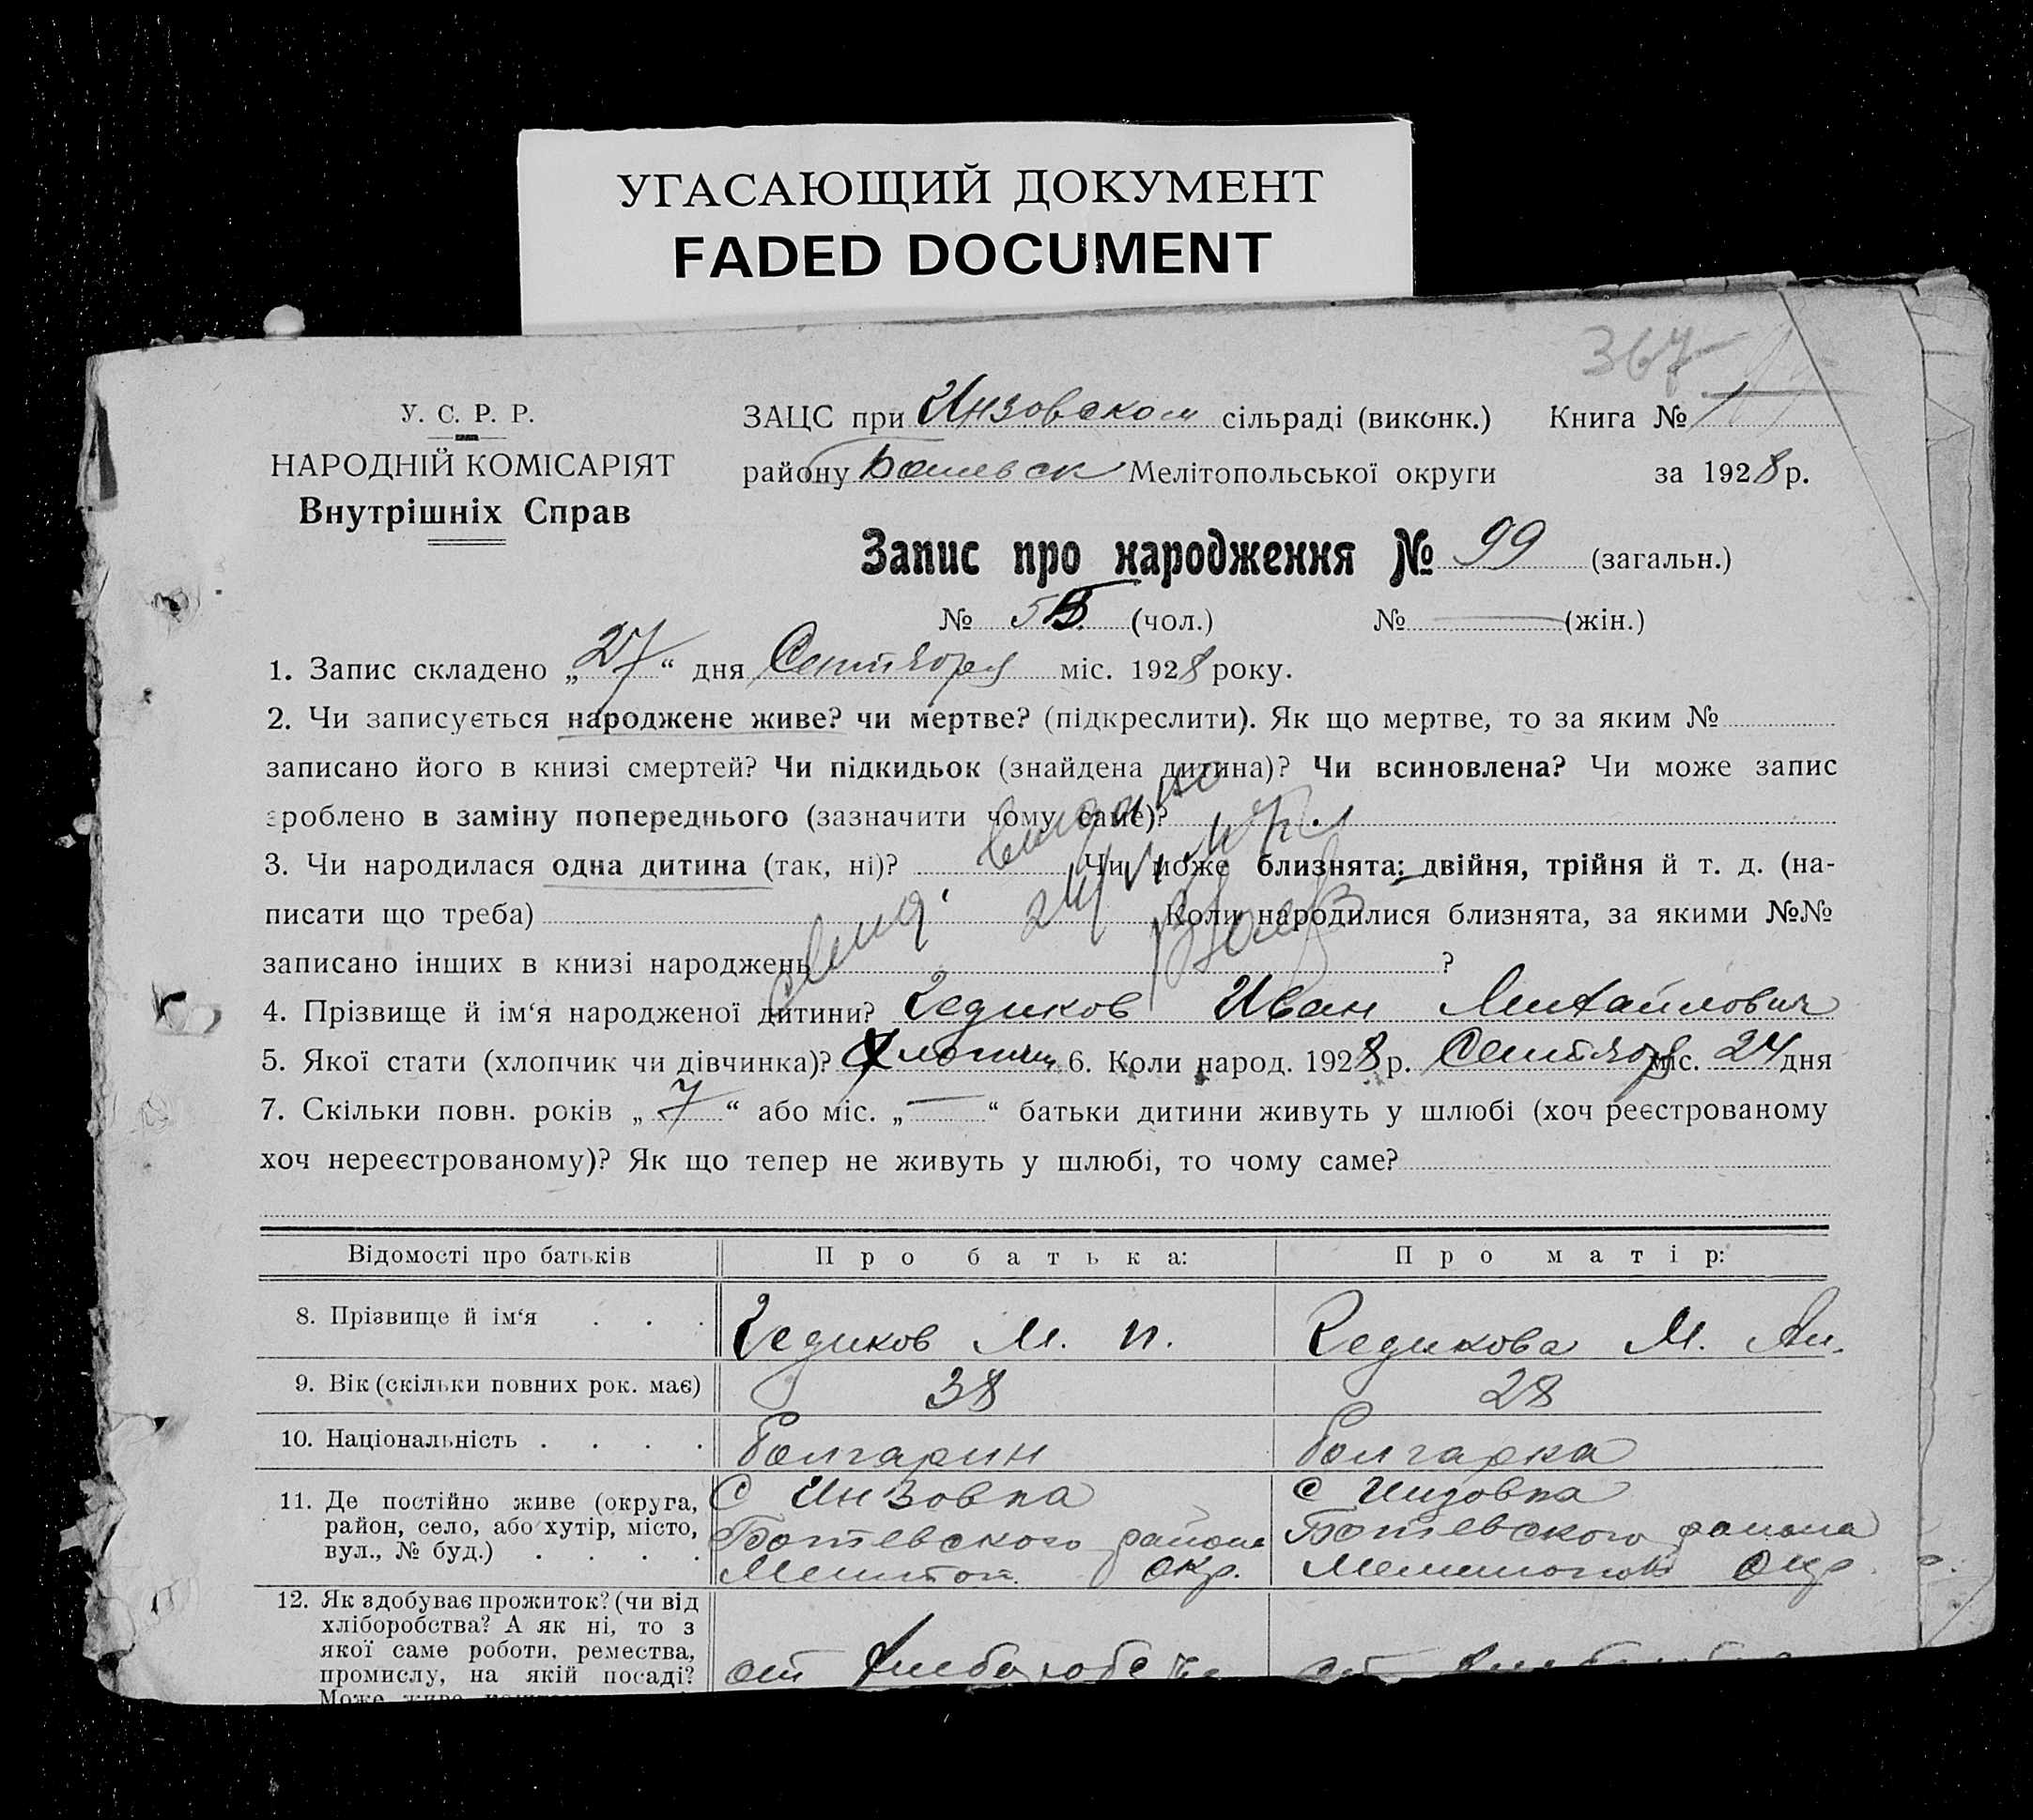 УГАСАЮЩИЙ ДОКУМЕНТ
FADED DOCUMENT
367
У. С. Р. Р.
НАРОДНІЙ КОМІСАРІЯТ
Внутрішніх Справ
ЗАЦС при Инзовском сільраді (виконк.) Книга № 1
району Ботевск Мелітопольської округи за 1928 р.
Запис про народження № 99 (загальн.)
№ (чол.) № — (жін.)
1. Запис складено „27“ дня Сентября міс. 1928 року.
2. Чи записується народжене живе? чи мертве? (підкреслити). Як що мертве, то за яким №
записано його в книзі смертей? Чи підкидьок (знайдена дитина)? Чи всиновлена? Чи може запис
зроблено в заміну попереднього (зазначити чому саме)?
3. Чи народилася одна дитина (так, ні)? Чи може близнята: двійня, трійня й т. д. (на-
писати що треба) Коли народилися близнята, за якими №№
записано інших в книзі народжень ?
4. Прізвище й ім‘я народженої дитини? Чедиков Иван Михайлович
5. Якої стати (хлопчик чи дівчинка)? 6. Коли народ. 1928 р. Сентябр міс. 24 дня
7. Скільки повн. років „7“ або міс. „—“ батьки дитини живуть у шлюбі (хоч реєстрованому
хоч нереєстрованому)? Як що тепер не живуть у шлюбі, то чому саме?
Відомості про батьків Про батька: Про матір:
8. Прізвище й ім‘я . . . Чедиков М. П. Чедикова М. Ан.
9. Вік (скільки повних рок. має) 38 28
10. Національність . . . . болгарин болгарка
11. Де постійно живе (округа, С Инзовка С Инзовка
район, село, або хутір, місто, Ботевского района Ботевского района
вул., № буд.) . . . . Мелитоп. окр. Мелитопол окр.
12. Як здобуває прожиток? (чи від
хліборобства? А як ні, то з
якої саме роботи, ремества,
промислу, на якій посаді? от от
Може живе